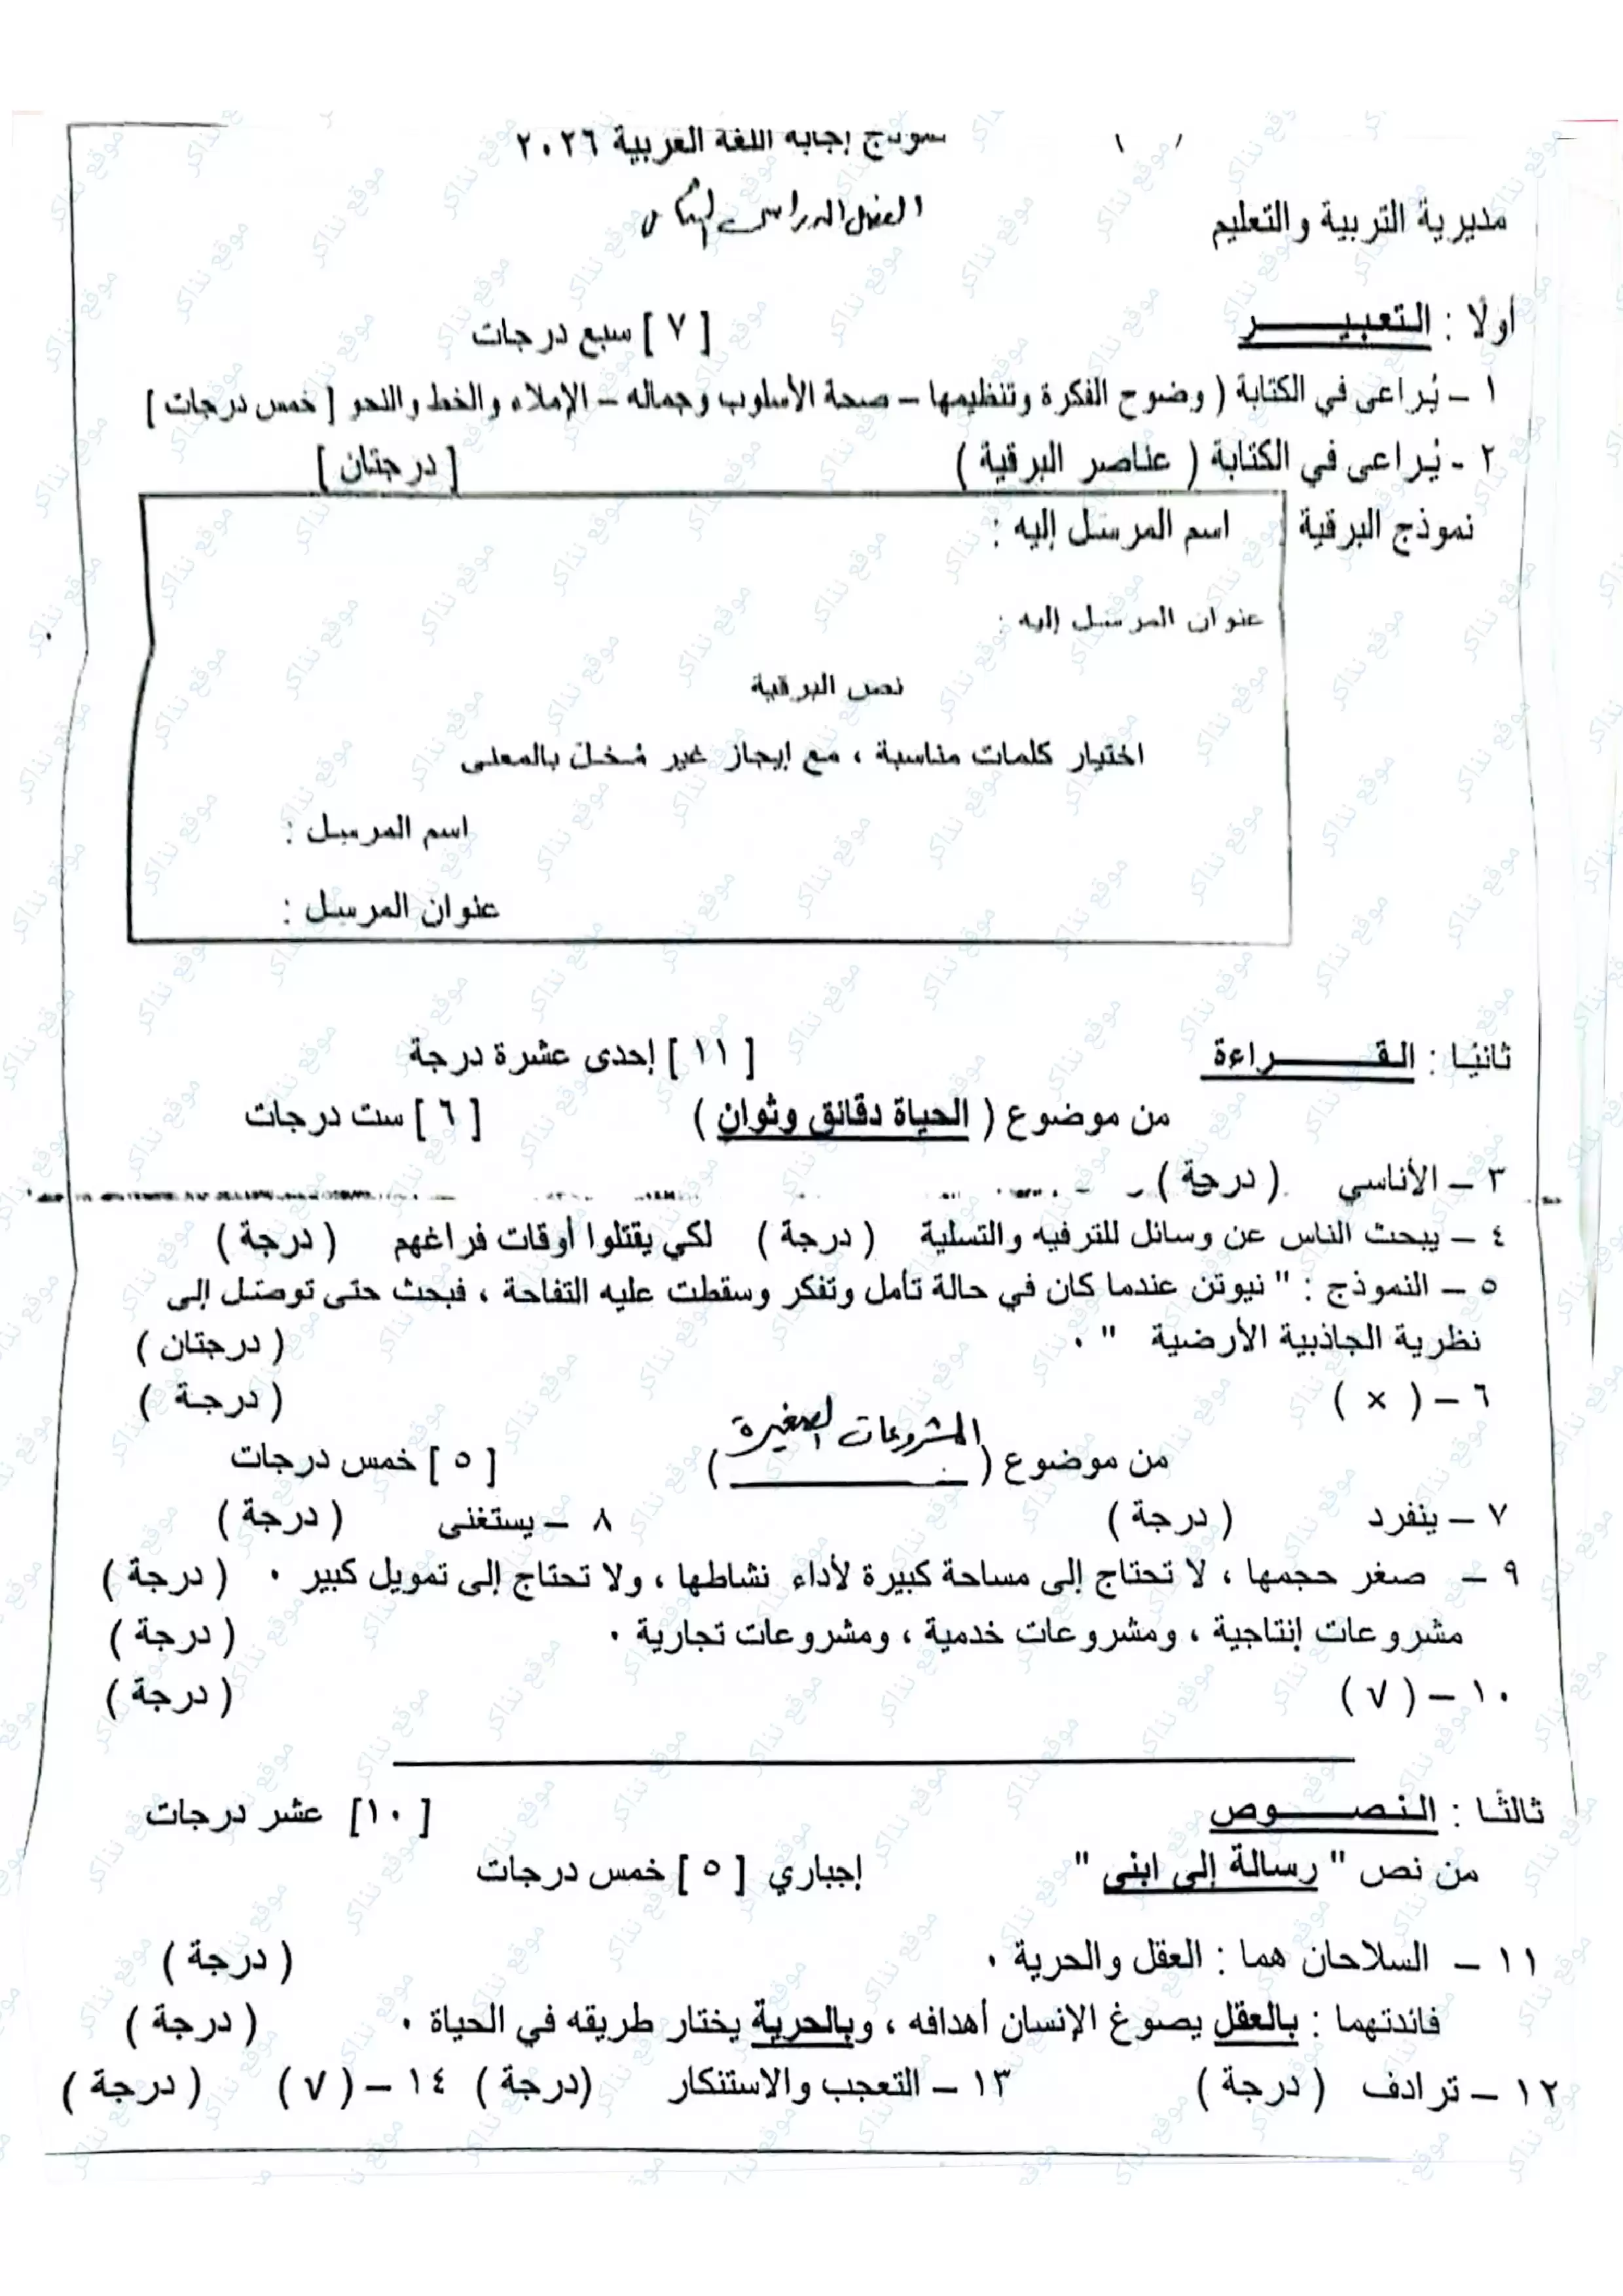 نموذج إجابة اللغة العربية ٢٠٢٦
مديرية التربية والتعليم
الفصل الدراسي
أولًا : التعبيــــــر [ ٧ ] سبع درجات
١ – يُراعى في الكتابة ( وضوح الفكرة وتنظيمها – صحة الأسلوب وجماله – الإملاء والخط والنحو [ خمس درجات ]
٢ - يُراعى في الكتابة ( عناصر البرقية ) [ درجتان ]
نموذج البرقية
اسم المرسل إليه :
عنوان المرسل إليه :
نص البرقية
اختيار كلمات مناسبة ، مع إيجاز غير مُخل بالمعنى
اسم المرسل :
عنوان المرسل :
ثانيًا : القــــــراءة [ ١١ ] إحدى عشرة درجة
من موضوع ( الحياة دقائق وثوان ) [ ٦ ] ست درجات
٣ – الأناسي ( درجة )
٤ – يبحث الناس عن وسائل للترفيه والتسلية ( درجة ) لكي يقتلوا أوقات فراغهم ( درجة )
٥ – النموذج : " نيوتن عندما كان في حالة تأمل وتفكر وسقطت عليه التفاحة ، فبحث حتى توصل إلى
نظرية الجاذبية الأرضية " . ( درجتان )
٦ – ( × ) ( درجة )
من موضوع ( المشروعات الصغيرة ) [ ٥ ] خمس درجات
٧ – ينفرد ( درجة ) ٨ – يستغنى ( درجة )
٩ – صغر حجمها ، لا تحتاج إلى مساحة كبيرة لأداء نشاطها ، ولا تحتاج إلى تمويل كبير . ( درجة )
مشروعات إنتاجية ، ومشروعات خدمية ، ومشروعات تجارية . ( درجة )
١٠ – ( √ ) ( درجة )
ثالثًا : النصــــوص [ ١٠ ] عشر درجات
من نص " رسالة إلى ابنى " إجباري [ ٥ ] خمس درجات
١١ – السلاحان هما : العقل والحرية . ( درجة )
فائدتهما : بالعقل يصوغ الإنسان أهدافه ، وبالحرية يختار طريقه في الحياة . ( درجة )
١٢ – ترادف ( درجة ) ١٣ – التعجب والاستنكار ( درجة ) ١٤ – ( √ ) ( درجة )
موقع نذاكر